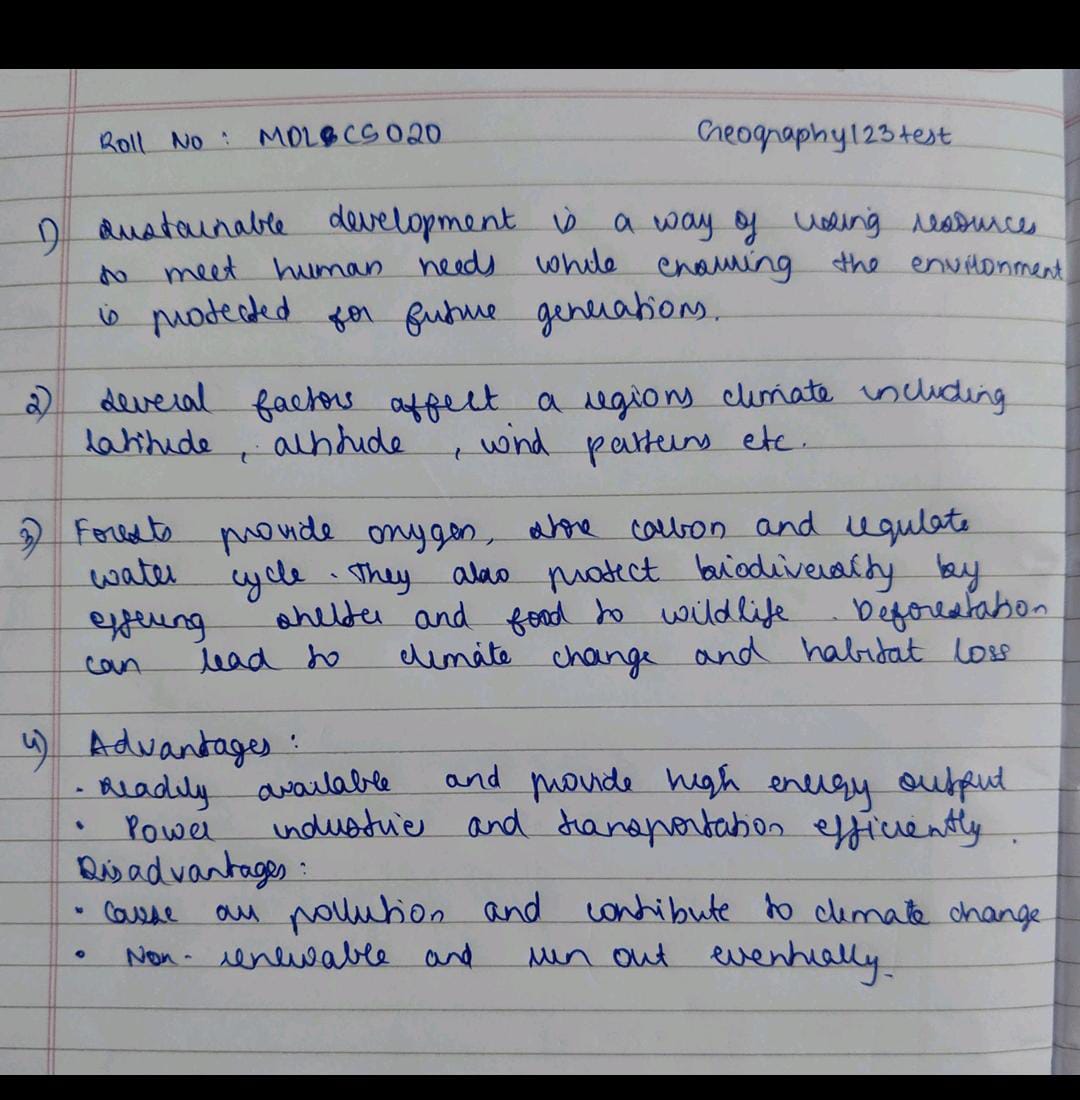 Roll No : MDL CS020 Geography123test
1) Sustainable development is a way of using resources
to meet human needs while ensuring the environment
is protected for future generations.
2) Several factors affect a regions climate including
latitude , altitude , wind patterns etc.
3) Forests provide oxygen, store carbon and regulate
water cycle. They also protect biodiversity by
offering shelter and food to wildlife. Deforestation
can lead to climate change and habitat loss
4) Advantages :
• Readily available and provide high energy output
• Power industries and transportation efficiently.
Disadvantages :
• Cause air pollution and contribute to climate change
• Non-renewable and run out eventually.